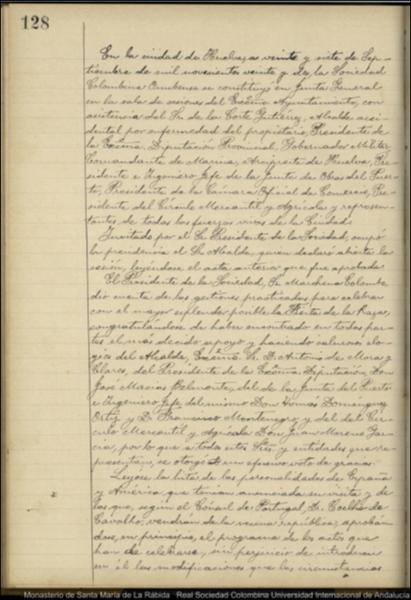 128
En la ciudad de Huelva a veinte y siete de Sep-
tiembre de mil novecientos veinte y dos, la Sociedad
Colombina Onubense se constituyó en Junta General
en la sala de sesiones del Excmo Ayuntamiento, con
asistencia del Sr. de la Corte Gutiérrez, Alcalde acci-
dental por enfermedad del propietario, Presidente de
la Excma. Diputación Provincial, Gobernador Militar,
Comandante de Marina, Arcipreste de Huelva, Pre-
sidente e Ingeniero Jefe de la Junta de Obras del Puer-
to, Presidente de la Cámara Oficial de Comercio, Pre-
sidente del Círculo Mercantil y Agrícola y represen-
tantes de todas las fuerzas vivas de la Ciudad.
Invitado por el Sr. Presidente de la Sociedad, ocupó
la presidencia el Sr. Alcalde, quien declaró abierta la
sesión, leyéndose el acta anterior que fue aprobada.
El Presidente de la Sociedad, Sr. Marchena Colombo
dio cuenta de las gestiones practicadas para celebrar
con el mayor esplendor posible la Fiesta de la Raza,
congratulándose de haber encontrado en todas par-
tes el más decidido apoyo y haciendo calurosos elo-
gios del Alcalde, Excmo. Sr. D. Antonio de Mora y
Claros, del Presidente de la Excma. Diputación, Don
José Macías Belmonte, del de la Junta del Puerto
e Ingeniero Jefe del mismo Don Tomás Domínguez
Ortiz y D. Francisco Montenegro y del del Cír-
culo Mercantil y Agrícola Don Juan Moreno Gar-
cía, por lo que a todos estos Sres. y entidades que re-
presentan, se otorgó un efusivo voto de gracias.
Leyóse la lista de las personalidades de España
y América que tenían anunciada su visita y de
las que, según el Cónsul de Portugal, Sr. Coelho de
Carvalho, vendrán de la vecina república, aproban-
dose, en principio, el programa de los actos que
han de celebrarse, sin perjuicio de introducir
en él las modificaciones que las circunstancias
Monasterio de Santa María de La Rábida Real Sociedad Colombina Universidad Internacional de Andalucía